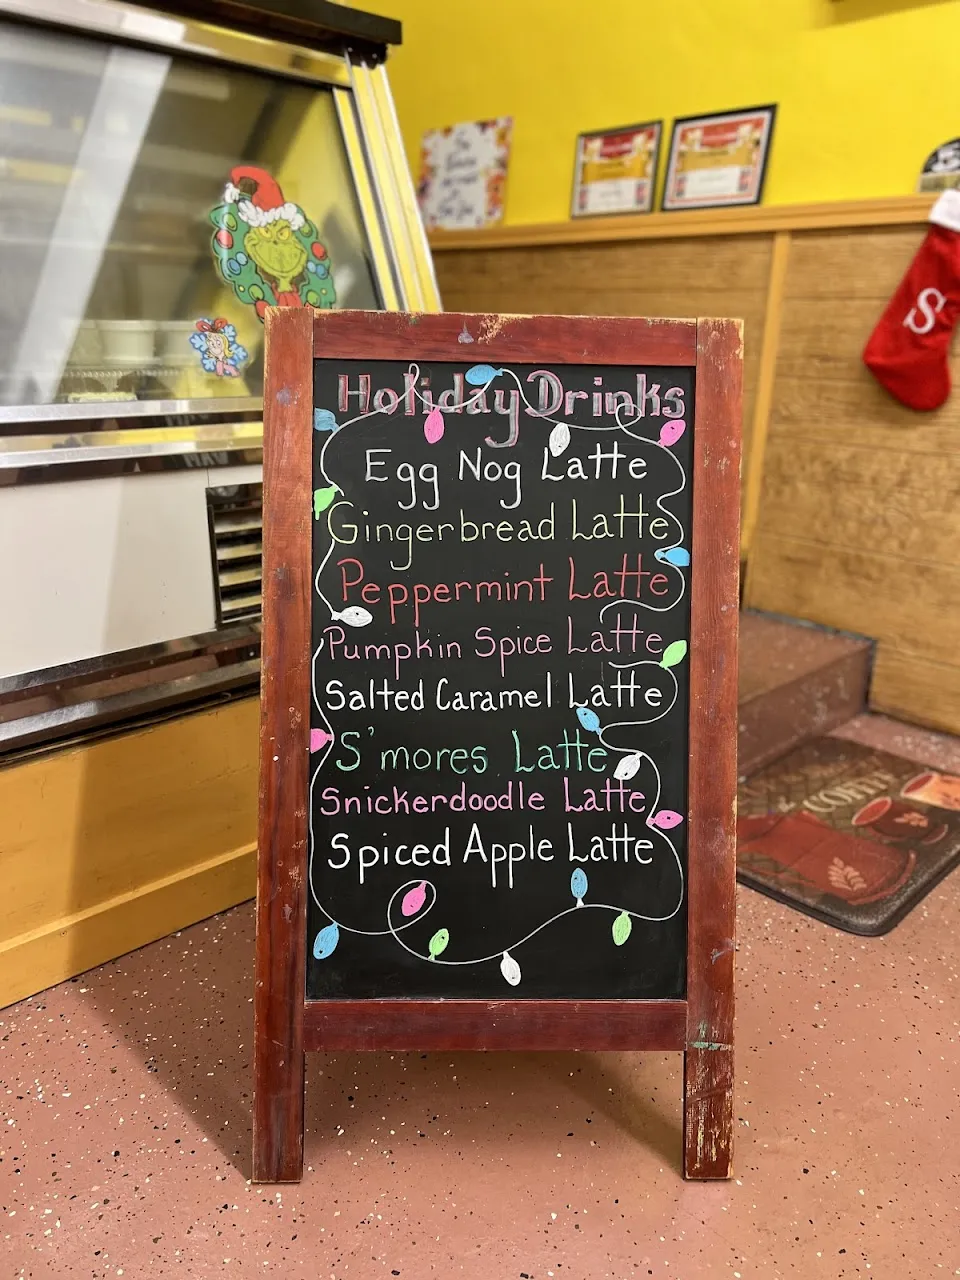 Holiday Drinks
Egg Nog Latte
Gingerbread Latte
Peppermint Latte
Pumpkin Spice Latte
Salted Caramel Latte
S'mores Latte
Snickerdoodle Latte
Spiced Apple Latte
S
COFFEE